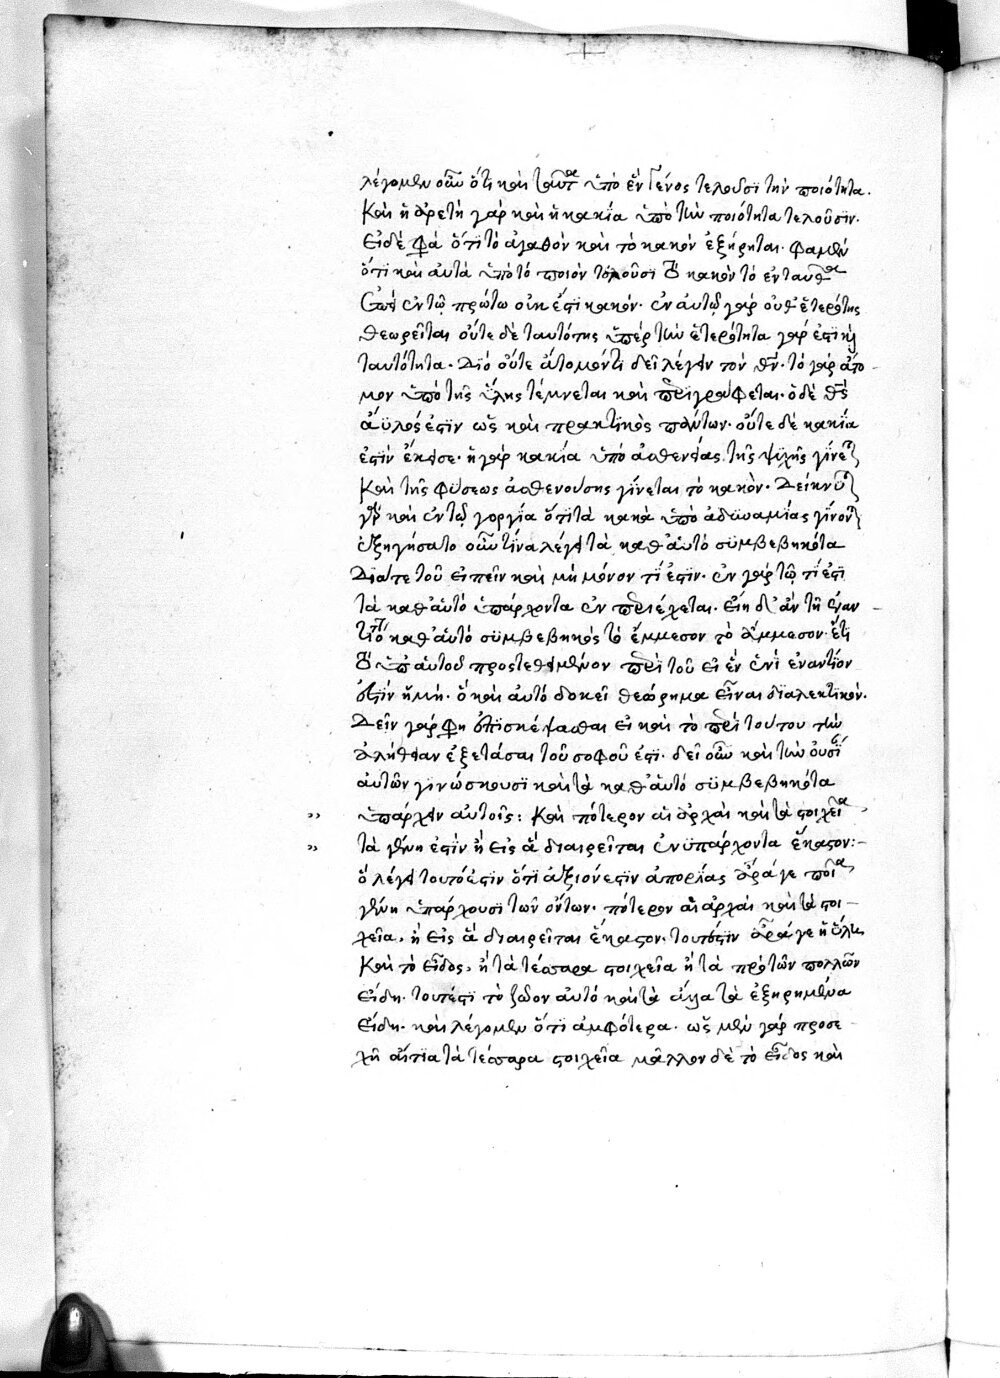 λέγομεν οὖν ὅτι καὶ ταῦτα ὑπὸ ἓν γένος τελοῦσι τὴν ποιότητα.
Καὶ ἡ ἀρετὴ γὰρ καὶ ἡ κακία ὑπὸ τὴν ποιότητα τελοῦσιν.
Εἰ δὲ ὅτι τὸ ἀγαθὸν καὶ τὸ κακὸν ἐξήρηται. φαμὲν
ὅτι καὶ αὐτὰ ὑπὸ τὸ ποιὸν τελοῦσι κακὸν τὸ ἐνταῦθα
ἐν τῷ πρώτῳ οὐκ ἔστι κακόν. ἐν αὐτῷ γὰρ οὐθ' ἑτερότης
θεωρεῖται οὔτε δὲ ταυτότης ὑπὲρ τὴν ἑτερότητα γάρ ἐστι καὶ
ταυτότητα. Διὸ οὔτε ἄτομόν τι δεῖ λέγειν τὸν θν. τὸ γὰρ ἄτο-
μον ὑπὸ τῆς ὕλης τέμνεται καὶ περιγράφεται. ὁ δὲ θς
ἄϋλός ἐστιν ὡς καὶ πρακτικὸς πάντων. οὔτε δὲ κακία
ἐστὶν ἐκεῖσε. ἡ γὰρ κακία ὑπὸ ἀσθενείας τῆς ψυχῆς γίνεται
Καὶ τῆς φύσεως ἀσθενούσης γίνεται τὸ κακὸν. Δείκνυται
γὰρ καὶ ἐν τῷ γοργίᾳ ὅτι τὰ κακὰ ὑπὸ ἀδυναμίας γίνονται
ἐξηγήσατο οὖν τίνα λέγει τὰ καθ' αὑτὸ συμβεβηκότα
Διὰ τε τοῦ εἰπεῖν καὶ μὴ μόνον τί ἐστιν. ἐν γὰρ τῷ τί ἐστι
τὰ καθ' αὑτὸ ὑπάρχοντα ἐν περιέχεται. Εἴη δ' ἂν τῇ ἐναν-
τιότητι καθ' αὑτὸ συμβεβηκός τὸ ἔμμεσον τὸ ἄμμεσον. ἔτι
ὑπ' αὐτοῦ προστεθειμένον περὶ τοῦ εἰ ἓν ἑνὶ ἐναντίον
ἐστὶν ἢ μή. ὃ καὶ αὐτὸ δοκεῖ θεώρημα εἶναι διαλεκτικόν.
Δεῖν γάρ φησι ἐπισκέψασθαι εἰ καὶ τὸ περὶ τούτου τὴν
ἀλήθειαν ἐξετάσαι τοῦ σοφοῦ ἐστι. δεῖ οὖν καὶ τὴν οὐσίαν
αὐτῶν γινώσκουσι καὶ τὰ καθ' αὑτὸ συμβεβηκότα
ὑπάρχειν αὐτοῖς: Καὶ πότερον αἱ ἀρχαὶ καὶ τὰ στοιχεῖα
τὰ γένη ἐστὶν ἢ εἰς ἃ διαιρεῖται ἐνυπάρχοντα ἕκαστον:-
ὃ λέγει τοῦτό ἐστιν ὅτι ἄξιόν ἐστιν ἀπορίας ἆρά γε ποῖα
γένη ὑπάρχουσι τῶν ὄντων. πότερον αἱ ἀρχαὶ καὶ τὰ στοι-
χεῖα. ἢ εἰς ἃ διαιρεῖται ἕκαστον. τουτέστιν ἆρά γε ἡ ὕλη
Καὶ τὸ εἶδος, ἢ τὰ τέσσαρα στοιχεῖα ἢ τὰ πρὸ τῶν πολλῶν
Εἴδη. τουτέστι τὸ ζῶον αὐτὸ καὶ τὰ ἄλλα τὰ ἐξηρημένα
Εἴδη. καὶ λέγομεν ὅτι ἀμφότερα. ὡς μὲν γὰρ προσε-
χῆ αἴτια τὰ τέσσαρα στοιχεῖα μᾶλλον δὲ τὸ εἶδος καὶ